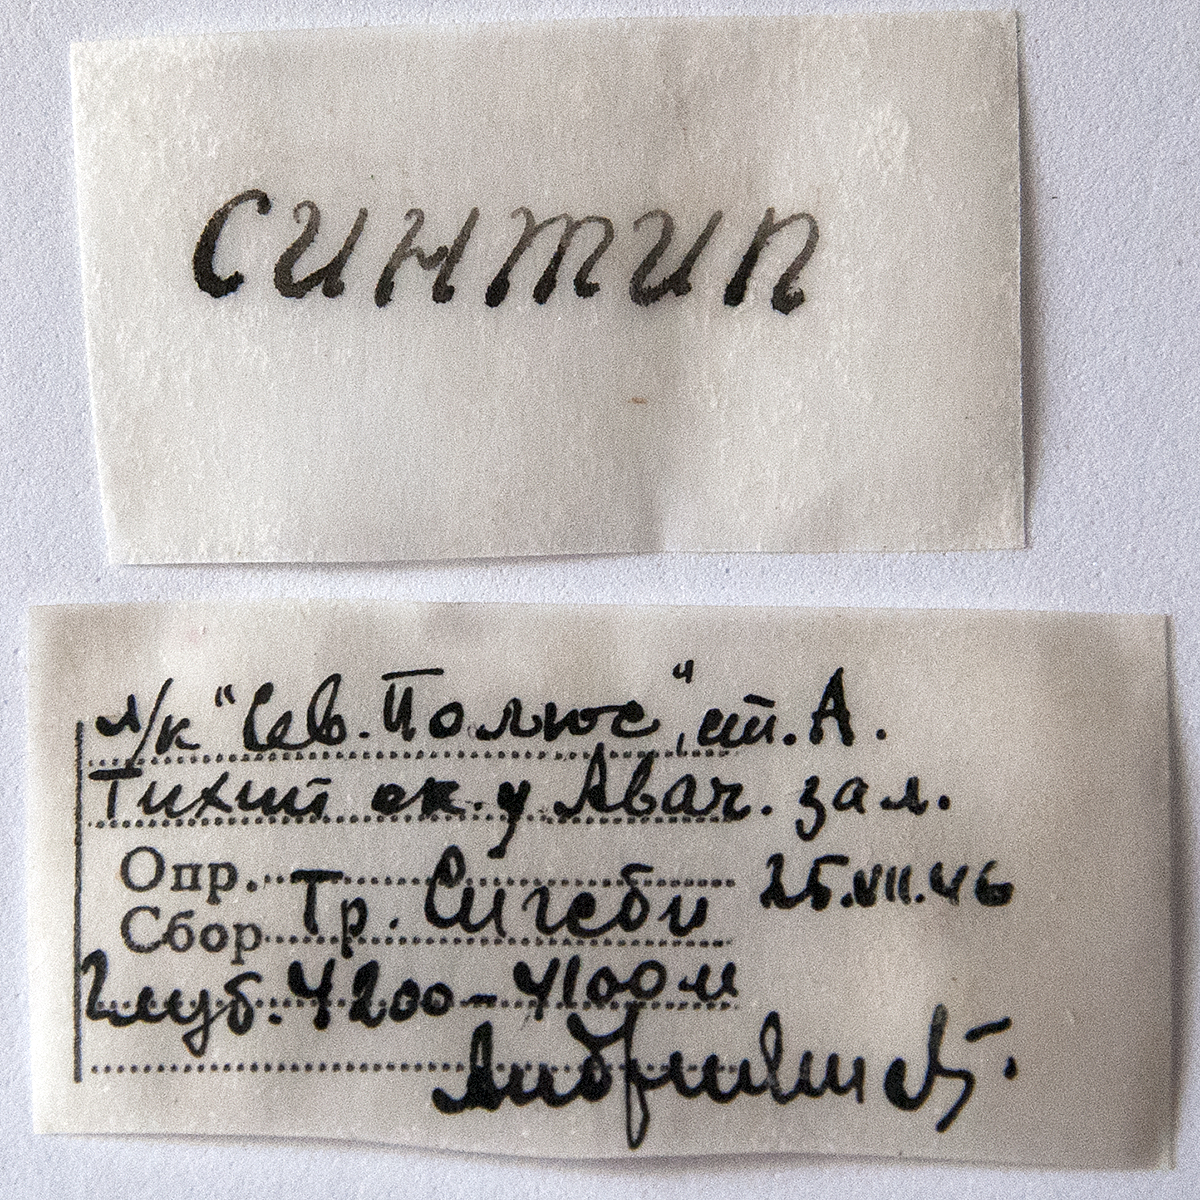 синтип
л/к "Сев. Полюс", ст. А.
Тихий ок. у Авач. зал.
Опр. 25.VII.46
Сбор Тр. Сигсби
Глуб. 4200–4100 м